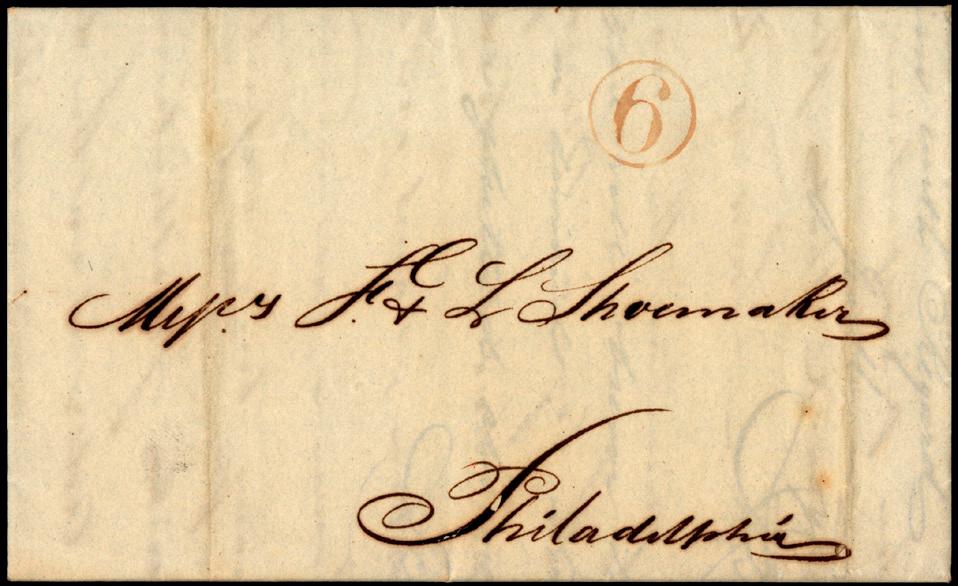 6
Messrs F. & L Shoemaker
Philadelphia